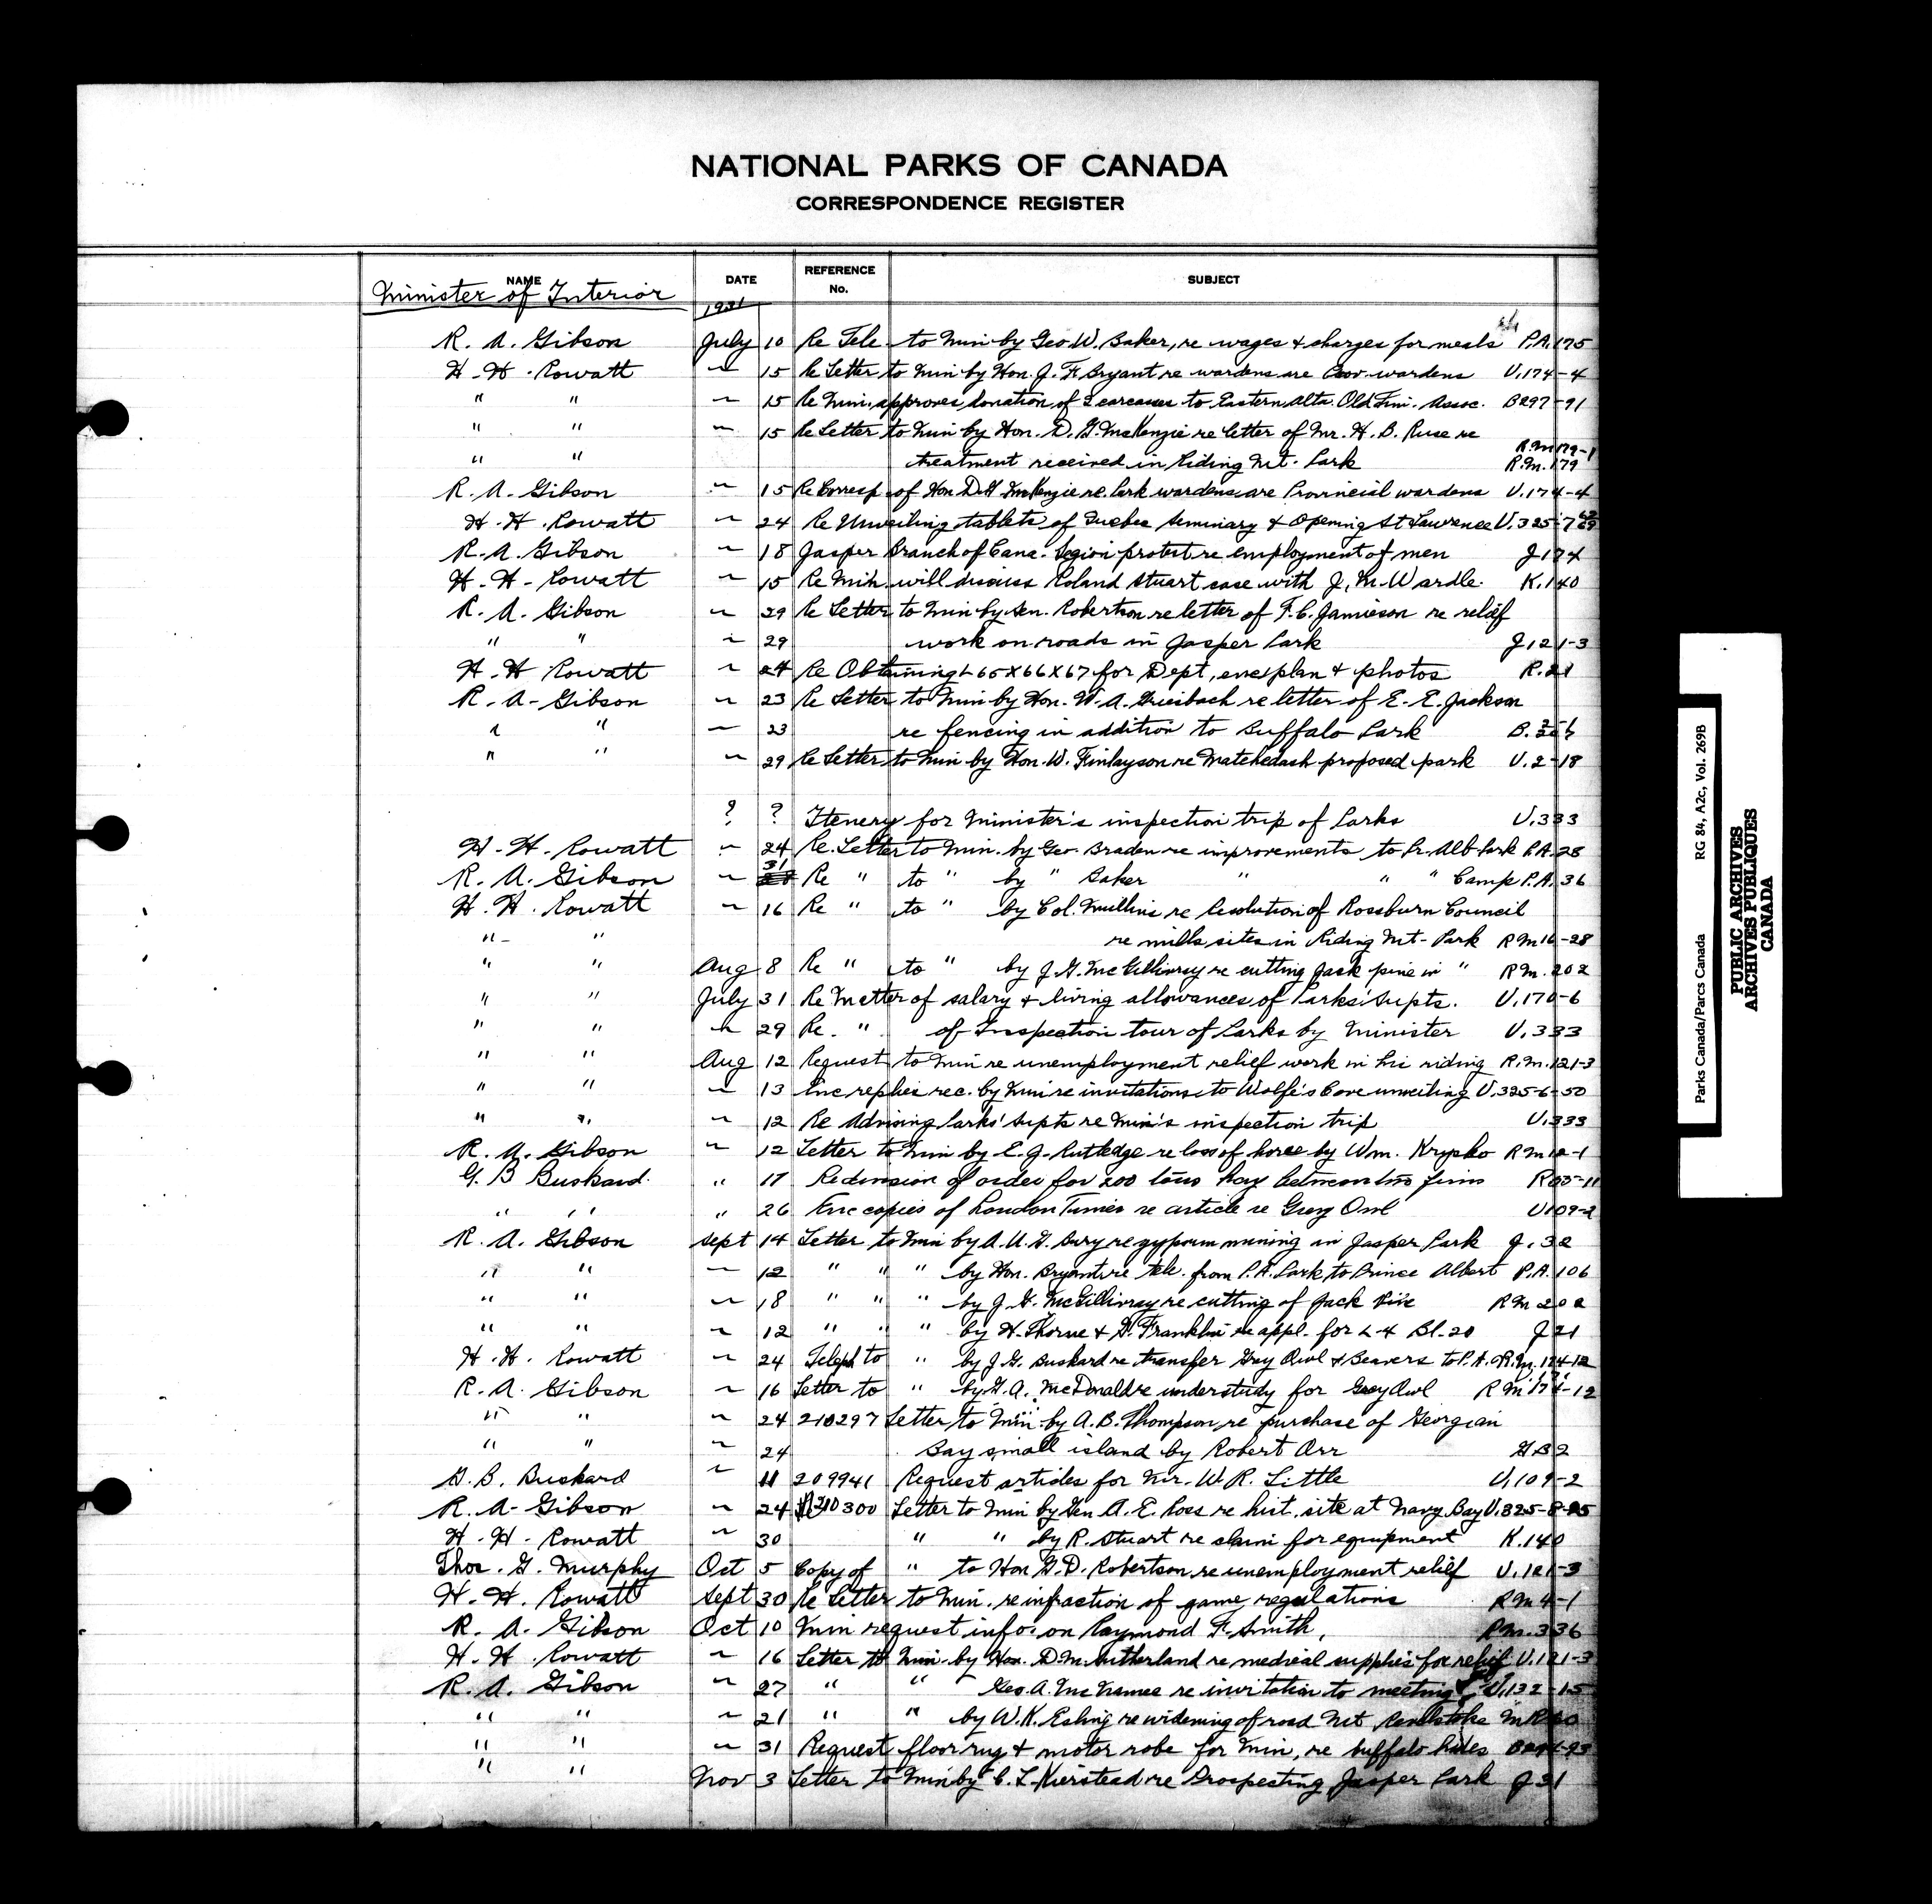 NATIONAL PARKS OF CANADA
CORRESPONDENCE REGISTER
NAME DATE REFERENCE No. SUBJECT
Minister of Interior 1931
R. A. Gibson July 10 Re Tele to Min by Geo W. Baker, re wages & charges for meals P.A. 175
H. H. Rowatt " 15 Re Letter to Min by Hon. J. F. Bryant re wardens are Prov wardens U.174-4
" " " 15 Re Min. approves donation of 2 carcasses to Eastern Alta Old Tim. Assoc. B297-91
" " " 15 Re Letter to Min by Hon. D. G. McKenzie re letter of Mr. H. B. Ruse re R.M 179-1
" " treatment received in Riding Mt. Park R.M. 179
R. A. Gibson " 15 Re Corresp of Hon D.G McKenzie re. Park wardens are Provincial wardens U.174-4
H. H. Rowatt " 24 Re Unveiling tablets of Quebec Seminary & Opening St Lawrence U.325-7
R. A. Gibson " 18 Jasper Branch of Cana. Legion protest re employment of men J 174
H. H. Rowatt " 15 Re Min. will discuss Roland Stuart case with J. M. Wardle. K.140
R. A. Gibson " 29 Re Letter to Min by Sen. Robertson re letter of F. C. Jamieson re relief
" " " 29 work on roads in Jasper Park J 121-3
H. H. Rowatt " 24 Re Obtaining L 65 X 66 X 67 for Dept, enc plan & photos R.21
R. A. Gibson " 23 Re Letter to Min by Hon. W. A. Griesbach re letter of E. E. Jackson
" " " 23 re fencing in addition to Buffalo Park B.
" " " 29 Re Letter to Min by Hon. W. Finlayson re Matchedash proposed park U.2-18
? ? Itenery for Minister's inspection trip of Parks U.333
H. H. Rowatt " 24 Re. Letter to Min. by Geo. Braden re improvements to Pr. Alb Park P.A. 28
R. A. Gibson " 31 Re " to " by " Baker " " " Camp P.A. 36
H. H. Rowatt " 16 Re " to " by Col. Mullins re Resolution of Rossburn Council
" " re mills sites in Riding Mt. Park R M 16-28
" " Aug 8 Re " to " by J. G. McGillivray re cutting jack pine in " R M. 202
" " July 31 Re Matter of salary & living allowances of Parks' Supts. U.170-6
" " " 29 Re. " of Inspection tour of Parks by Minister U.333
" " Aug 12 Request to Min re unemployment relief work in his riding R.M.121-3
" " " 13 Enc replies rec. by Min re invitations to Wolfe's Cove unveiling U.325-6-50
" " " 12 Re Advising Parks' Supts re Min's inspection trip U.333
R. A. Gibson " 12 Letter to Min by E. J. Rutledge re loss of horse by Wm. Krypko R M 12-1
G. B Buskard " 17 Re division of order for 200 tons hay between two firms
" " " 26 Enc copies of London Times re article re Grey Owl U109-2
R. A. Gibson Sept 14 Letter to Min by A. U. G. Bury re gypsum mining in Jasper Park J. 32
" " " 12 " " " by Hon. Bryant re tele. from P.A. Park to Prince Albert P.A. 106
" " " 18 " " " by J. G. McGillivray re cutting of Jack Pine R M 202
" " " 12 " " " by H. Thorne & G. Franklin re appl. for L-4 Bl. 20 J 21
H. H. Rowatt " 24 Teleph to " by J. G. Buskard re transfer Grey Owl & Beavers to P.A. R.M. 174-12
R. A. Gibson " 16 Letter to " by G. A. McDonald re understudy for Grey Owl R M 174-12
" " " 24 210297 Letter to Min by A. B. Thompson, re purchase of Georgian
" " " 24 Bay small island by Robert Orr G B 2
G. B. Buskard " 11 209941 Request articles for Mr. W. R. Little U,109-2
R. A. Gibson " 24 210300 Letter to Min by Gen A. E. Ross re hist. site at Navy Bay U.325-8-25
H. H. Rowatt " 30 " " by R. Stuart re claim for equipment K.140
Thos. G. Murphy Oct 5 Copy of " to Hon G. D. Robertson re unemployment relief U.121-3
H. H. Rowatt Sept 30 Re Letter to Min. re infraction of game regulations R M 4-1
R. A. Gibson Oct 10 Min request info. on Raymond F. Smith, R M. 336
H. H. Rowatt " 16 Letter to Min. by Hon. D. M. Sutherland re medical supplies for relief U.121-3
R. A. Gibson " 27 " " Geo. A. McNamee re invitation to meeting U.132-15
" " " 21 " " by W. K. Esling re widening of road Mt Revelstoke
" " " 31 Request floor rug & motor robe for Min, re buffalo hides
" " Nov 3 Letter to Min by C. L. Kierstead re Prospecting Jasper Park J 31
Parks Canada/Parcs Canada RG 84, A2c, Vol. 269B
PUBLIC ARCHIVES
ARCHIVES PUBLIQUES
CANADA